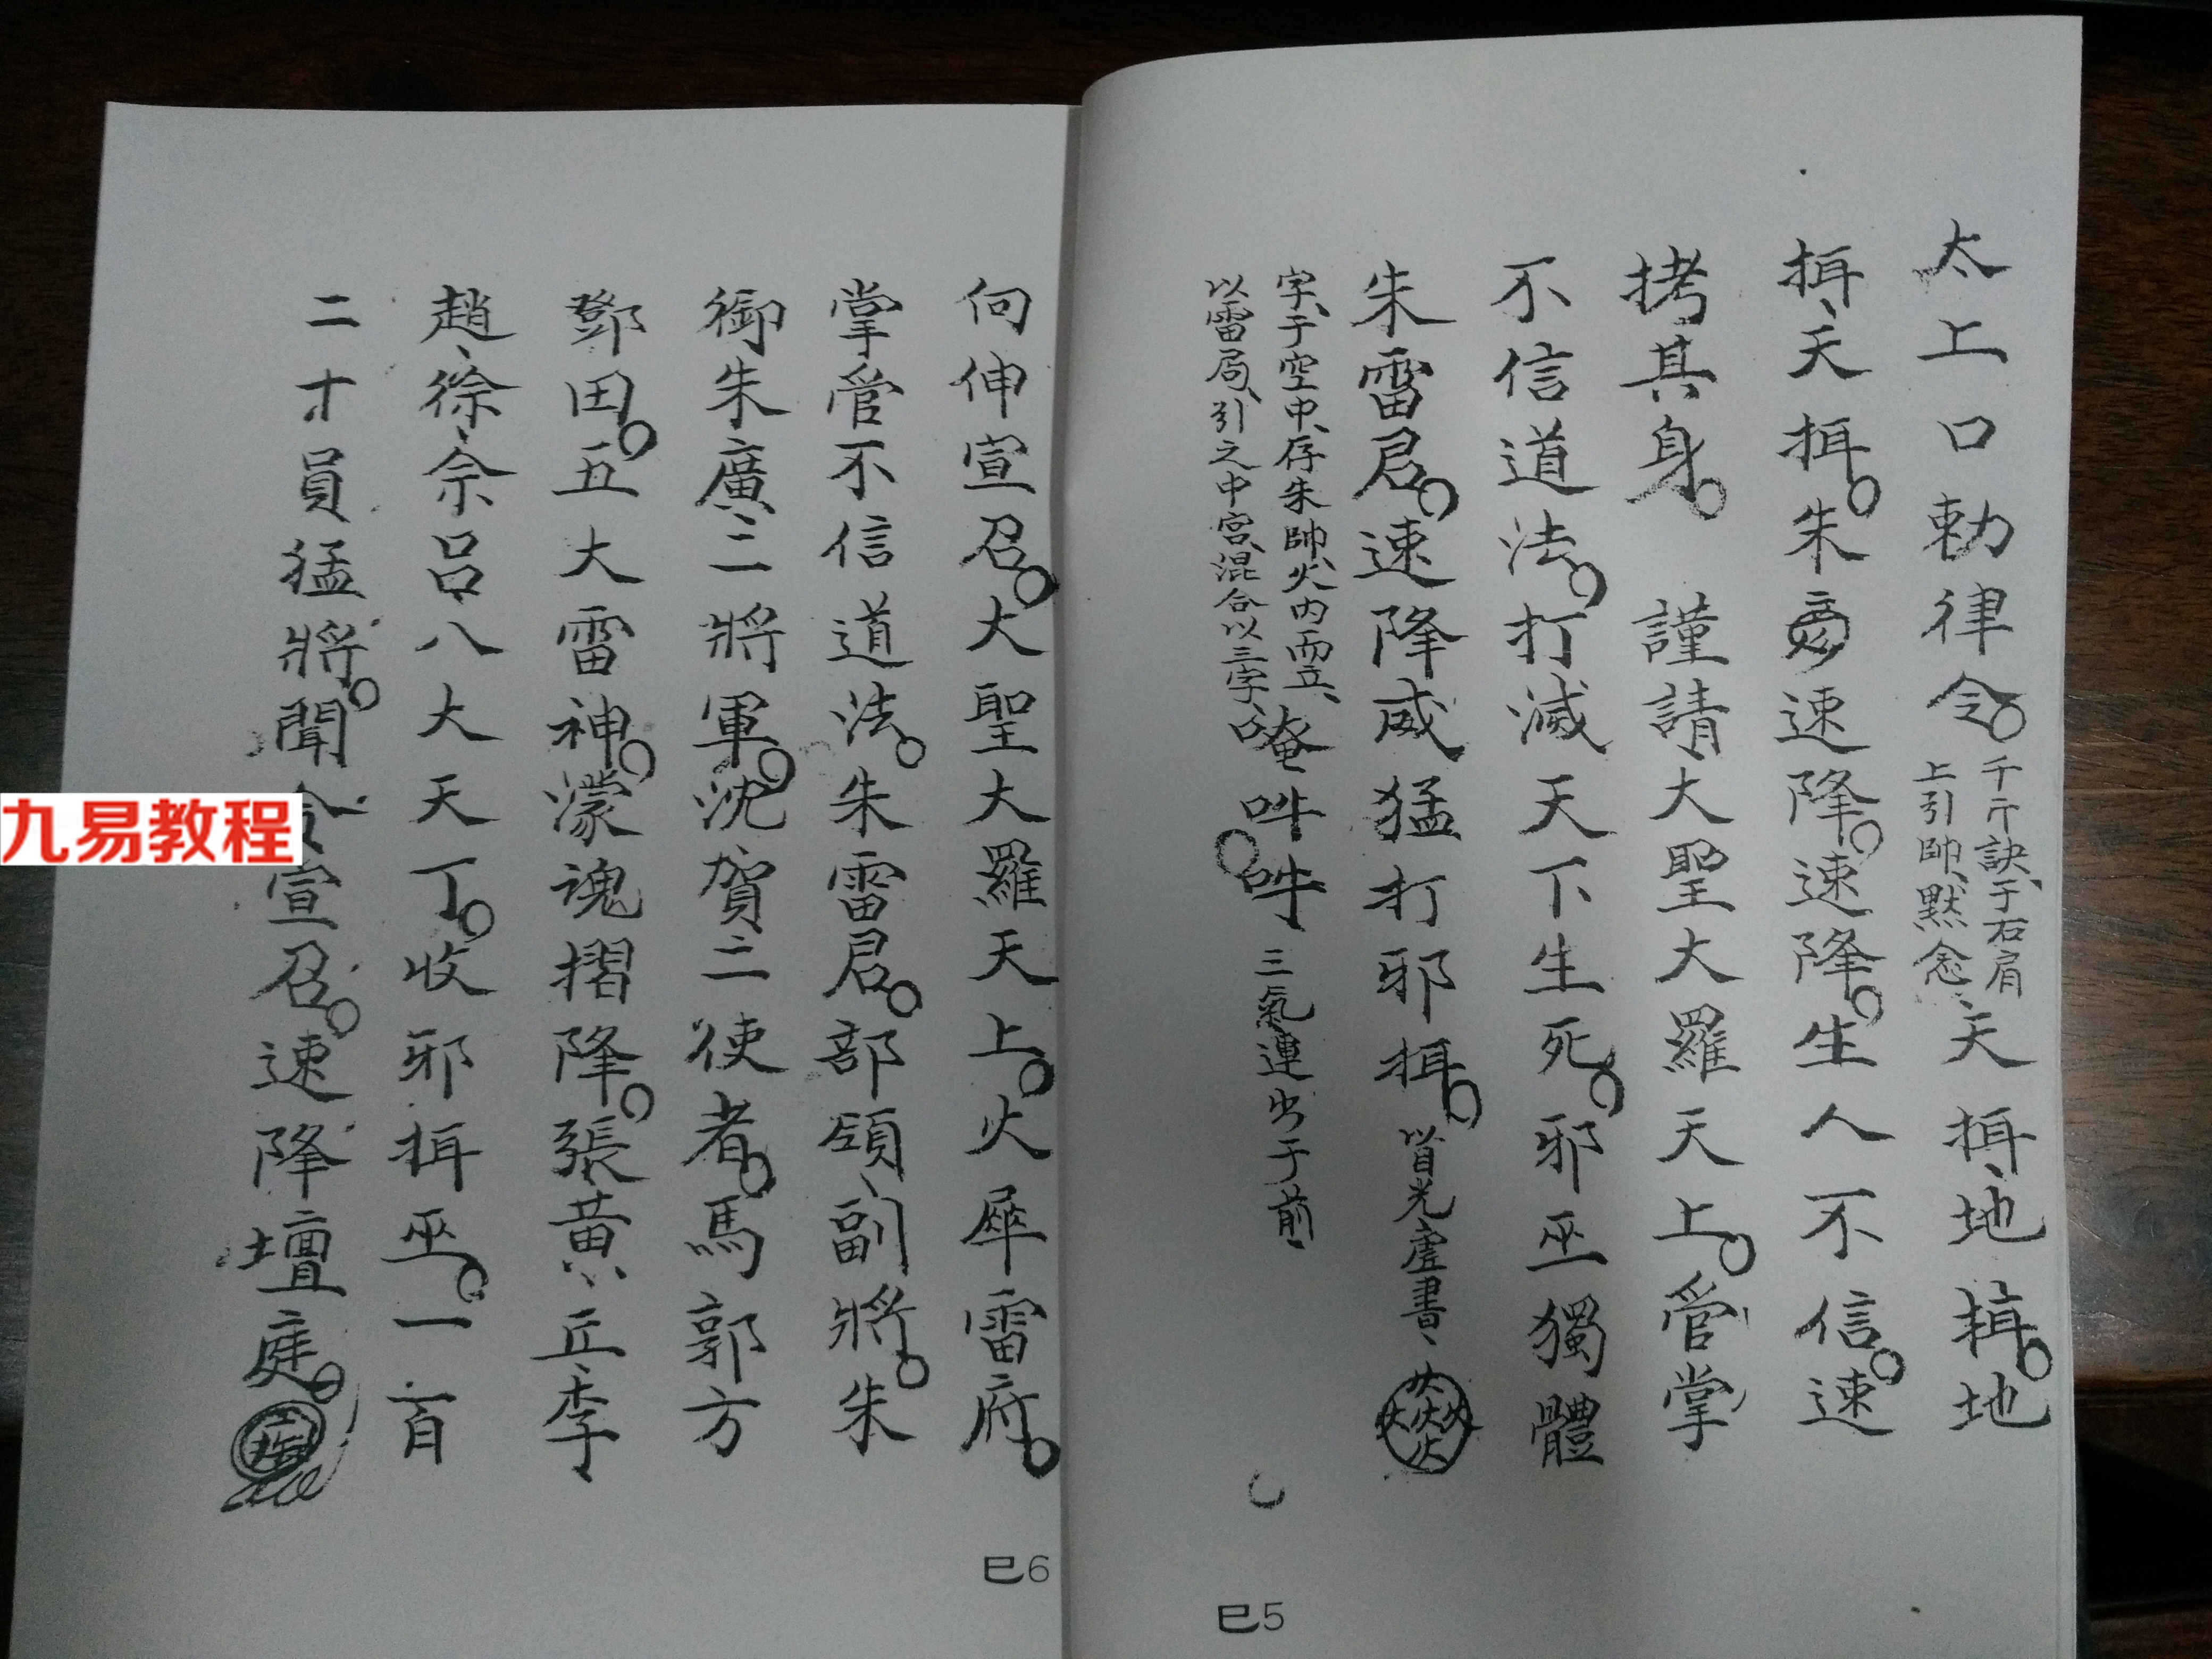 太上口勅律令。千斤訣、于右肩
上引帥、默念天揖、地揖。地
揖、天揖。朱速降。速降。生人不信。速
拷其身。謹請大聖大羅天上。管掌
不信道法。打滅天下生死。邪巫獨體
朱雷君。速降威猛打邪揖。以首光虛書、
字、于空中、存朱帥、火内而立、
以雷局、引之中宮、混合以三字、唵吽吽。三氣運出于前、
巳5
何伸宣召。大聖大羅天上。火犀雷府。
掌管不信道法。朱雷君。部領、副將。朱
御朱廣、二將軍。沈賀二使者。馬郭方
鄧田。五大雷神。濛魂摺降。張黃丘李
趙、徐、佘呂八大天丁。收邪揖巫。一百
二十員猛將。聞令宣召。速降壇庭。
巳6
九易教程